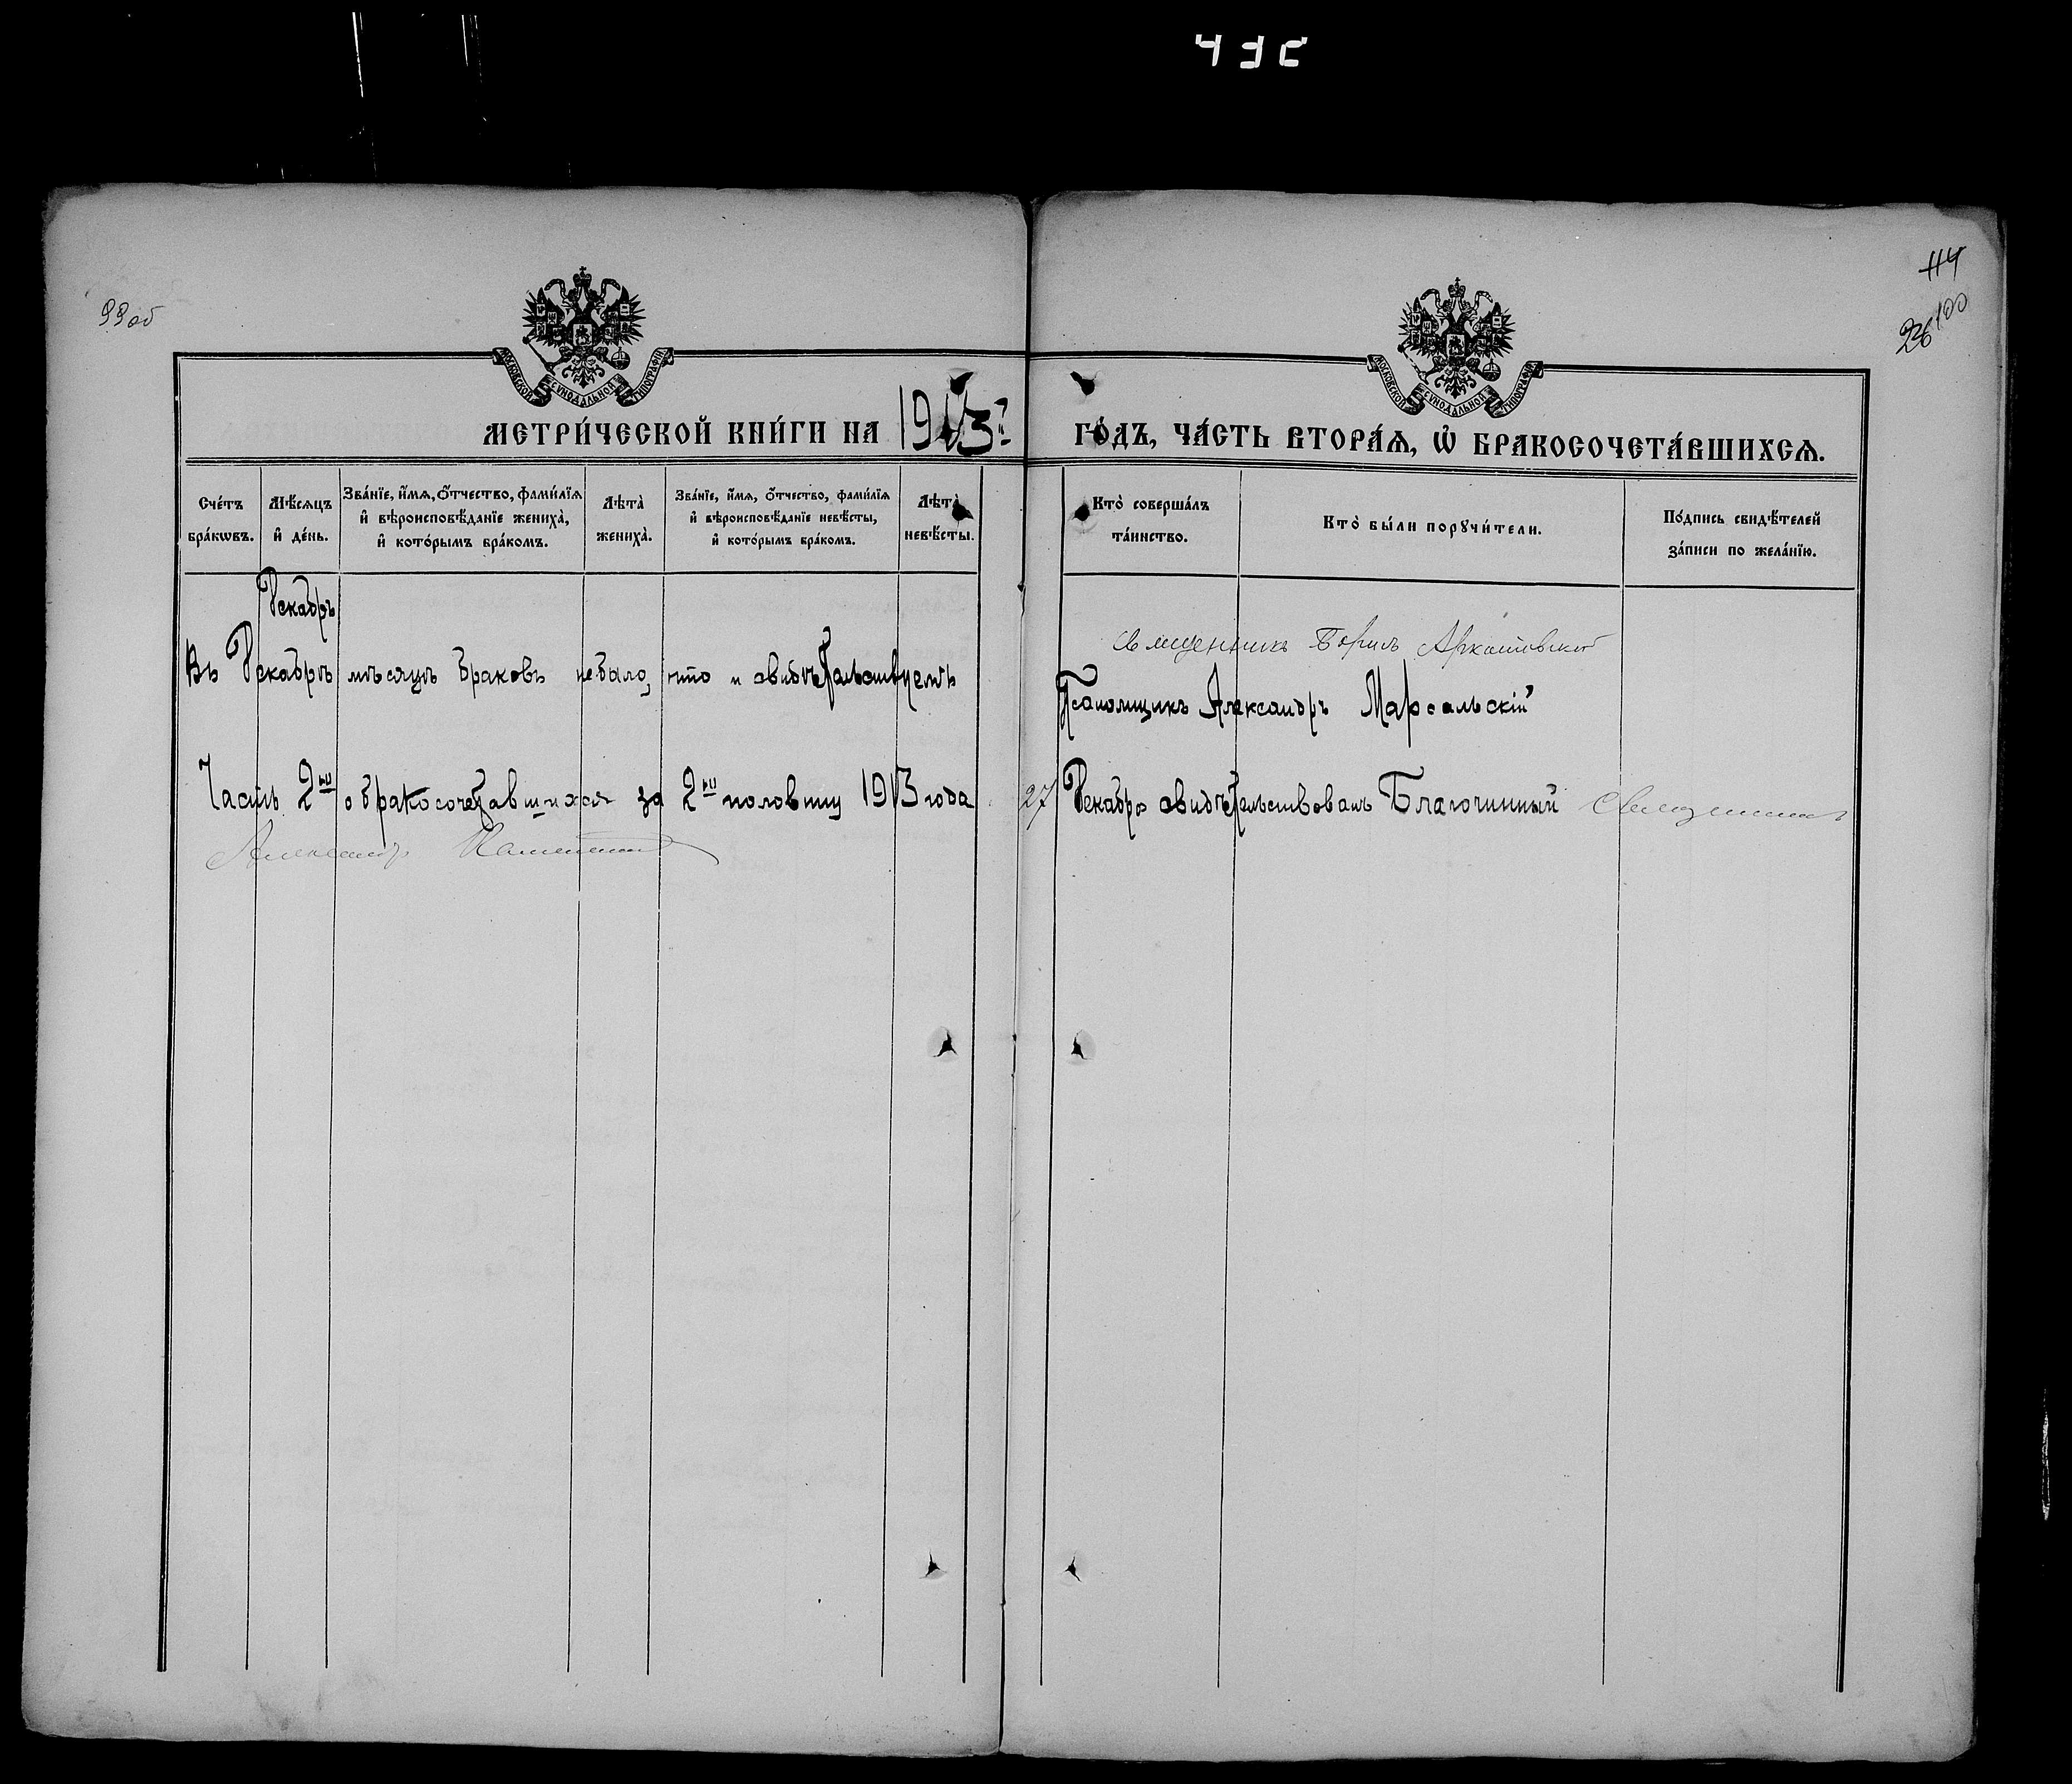 99об
114
100
26
МОСКОВСКОЙ СУНОДАЛЬНОЙ ТИПОГРАФІИ
МОСКОВСКОЙ СУНОДАЛЬНОЙ ТИПОГРАФІИ
МЕТРИ́ЧЕСКОЙ КНИ́ГИ НА 1913й
ГО́ДЪ, ЧА́СТЬ ВТОРА́Ѧ, Ѽ БРАКОСОЧЕТА́ВШИХСѦ.
Сче́тъ бра́кѡвъ.
Мѣ́сѧцъ и҆ де́нь.
Зва́нїе, и҆́мѧ, ѻ҆́тчество, фами́лїѧ и҆ вѣроисповѣ́данїе жениха̀, и҆ кото́рымъ бра́комъ.
Лѣта̀ жениха̀.
Зва́нїе, и҆́мѧ, ѻ҆́тчество, фами́лїѧ и҆ вѣроисповѣ́данїе невѣ́сты, и҆ кото́рымъ бра́комъ.
Лѣта̀ невѣ́сты.
Кто̀ соверша́лъ та́инство.
Кто̀ бы́ли порꙋчи́тели.
По́дпись свидѣ́телей за́писи по жела́нїю.
Декабрь
Въ Декабрѣ мѣсяцѣ браковъ небыло, что и свидѣтельствуемъ
Священникъ Борисъ
Псаломщикъ Александръ Марсальскій
Часть 2ю о бракосочетавшихся за 2ю половину 1913 года
27 Декабря свидѣтельствовалъ Благочинный Священникъ
Александръ